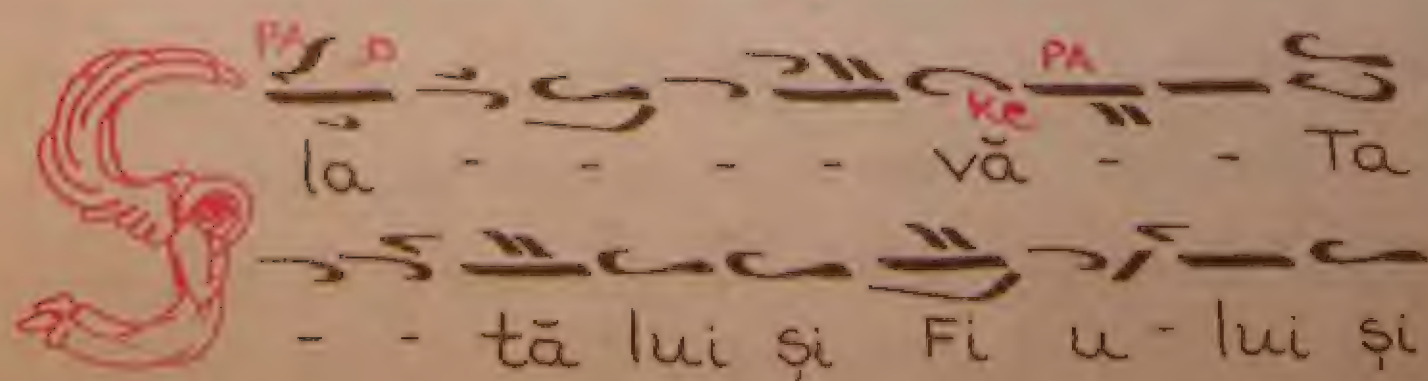 PA D Ke PA
Sla - - - - vă - - Ta
- - tă lui și Fi u - lui și